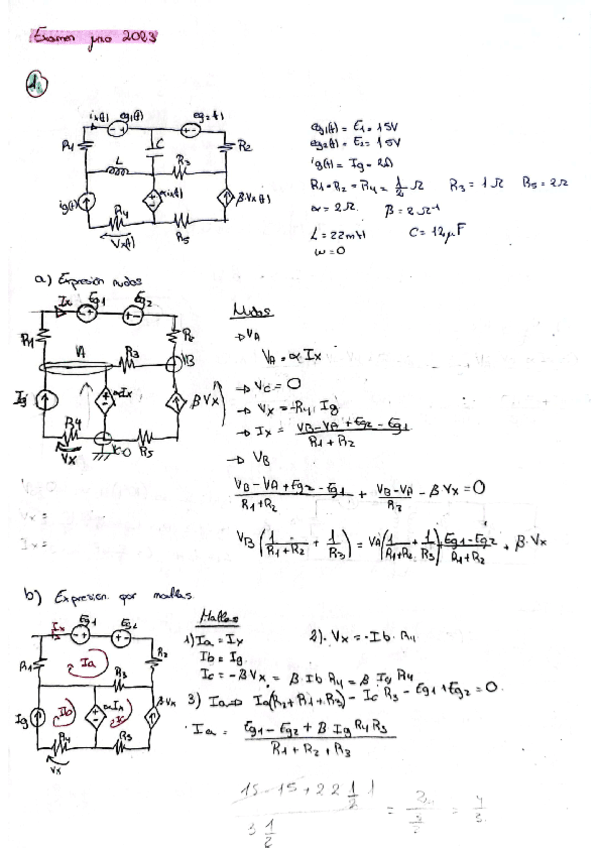 Examen junio 2023
1.
ix(t) eg1(t) eg2(t)
R1 C R2
L R3
ig(t) αix(t) β·Vx(t)
R4 R5
Vx(t)
eg1(t) = E1 = 15V
eg2(t) = E2 = 15V
ig(t) = Ig = 2A
R1 = R2 = R4 = 1/2 Ω R3 = 1Ω R5 = 2Ω
α = 2Ω β = 2Ω⁻¹
L = 22mH C = 12μF
ω = 0
a) Expresión nudos
Ix Eg1 Eg2
R1 R2
VA R3 VB
Ig αIx βVx
R4 VC=0 R5
Vx
Nudos
→ VA
VA = αIx
→ VC = 0
→ Vx = -R4·Ig
→ Ix = (VB - VA + Eg2 - Eg1)/(R1 + R2)
→ VB
(VB - VA + Eg2 - Eg1)/(R1 + R2) + (VB - VA)/R3 - βVx = 0
VB (1/(R1+R2) + 1/R3) = VA (1/(R1+R2) + 1/R3) + (Eg1 - Eg2)/(R1+R2) + β·Vx
Vx =
Ix =
b) Expresion por mallas
Ix Eg1 Eg2
R1 Ia R2
R3
Ig Ib αIx Ic βVx
R4 R5
Vx
Mallas
1) Ia = Ix 2). Vx = -Ib·R4
Ib = Ig
Ic = -βVx = β Ib R4 = β Ig R4
3) Ia ⇒ Ia(R2 + R1 + R3) - Ic R3 - Eg1 + Eg2 = 0
· Ia = (Eg1 - Eg2 + β Ig R4 R3)/(R1 + R2 + R3)